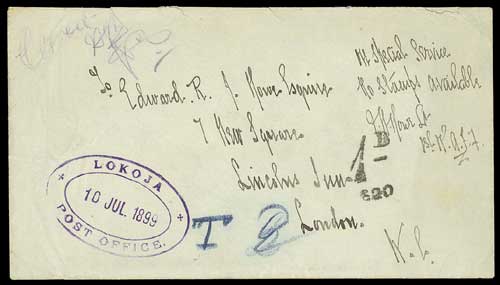 On Special Service
No Stamps available
To Edward. R. J. Howe Esquire
7 New Square
Lincolns Inn
London.
W. C.
LOKOJA
10 JUL. 1899
POST OFFICE.
T
B
620